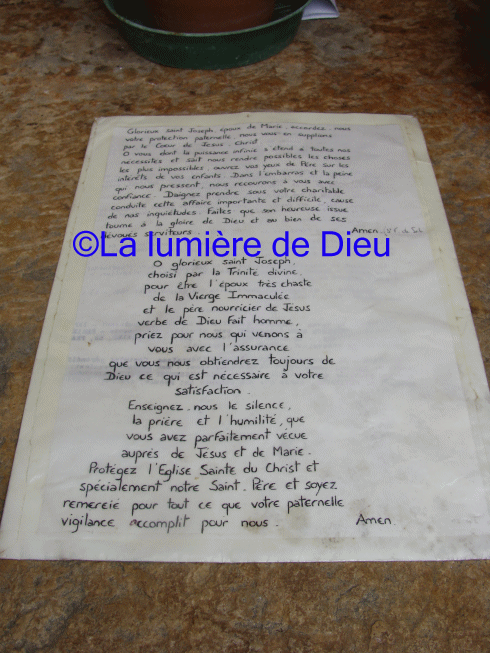 Glorieux saint Joseph, époux de Marie, accordez-nous
votre protection paternelle, nous vous en supplions
par le Coeur de Jésus-Christ
O vous dont la puissance infinie s'étend à toutes nos
nécessités et sait nous rendre possibles les choses
les plus impossibles, ouvrez vos yeux de Père sur les
intérêts de vos enfants. Dans l'embarras et la peine
qui nous pressent, nous recourons à vous avec
confiance. Daignez prendre sous votre charitable
conduite cette affaire importante et difficile, cause
de nos inquiétudes. Faites que son heureuse issue
tourne à la gloire de Dieu et au bien de ses
dévoués serviteurs. Amen.
©La lumière de Dieu
O glorieux saint Joseph,
choisi par la Trinité divine,
pour être l'époux très chaste
de la Vierge Immaculée
et le père nourricier de Jésus
verbe de Dieu Fait homme,
priez pour nous qui venons à
vous avec l'assurance
que vous nous obtiendrez toujours de
Dieu ce qui est nécessaire à votre
satisfaction.
Enseignez-nous le silence,
la prière et l'humilité, que
vous avez parfaitement vécue
auprès de Jésus et de Marie.
Protégez l'Eglise Sainte du Christ et
spécialement notre Saint-Père et soyez
remercié pour tout ce que votre paternelle
vigilance accomplit pour nous. Amen